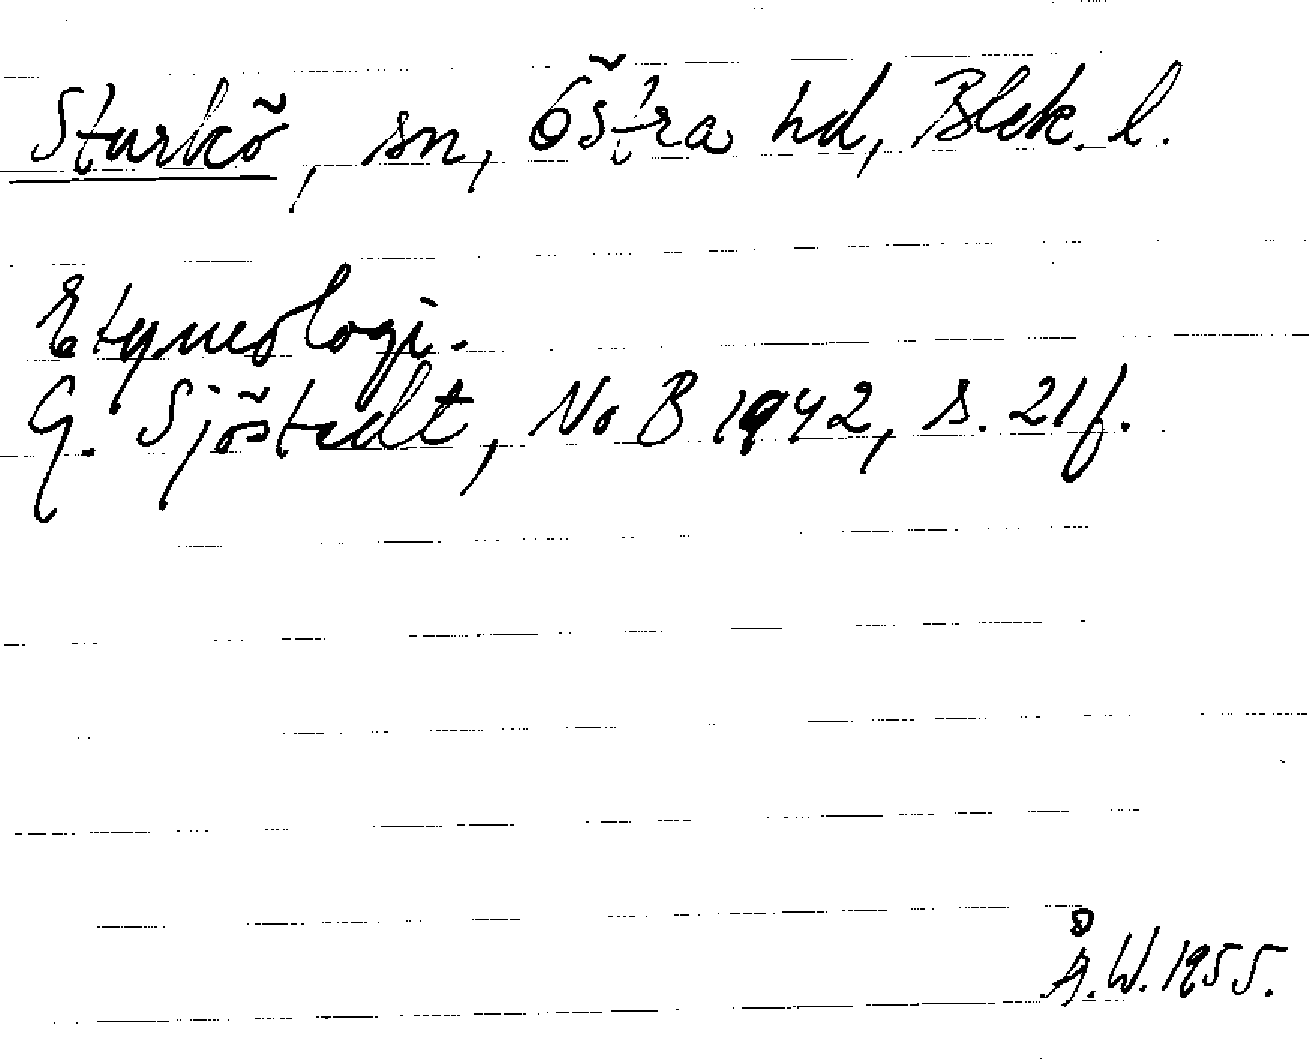 Sturkö, sn, Östra hd, Blek. l.
Etymologi.
G. Sjöstedt, NoB 1942, s. 21 f.
Å.W. 1955.